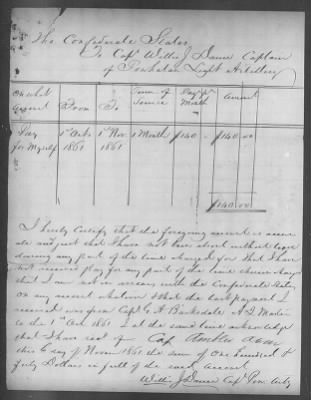 The Confederate States
To Capt Willis J Dance Captain
of Powhatan Light Artillery
On what Account From To Term of Service Pay pr Month Amount
Pay for Myself 1st Octo 1861 1st Nov 1861 1 Month $140 $140 00
$140 00
I hereby Certify that the foregoing account is accu
rate and just that I have not been absent without leave
during any part of the time charged for that I have
not received pay for any part of the time therein charged
that I am not in arrears with the Confederate States
on any account whatever & that the last payment I
received was from Capt G. A Barksdale A Q Master
to the 1st Oct 1861 I at the same time acknowledge
that I have recd of Capt
this 6 day of Novem 1861 the sum of One hundred &
forty Dollars in full of the said Account
Willis J Dance Capt Pow Arty